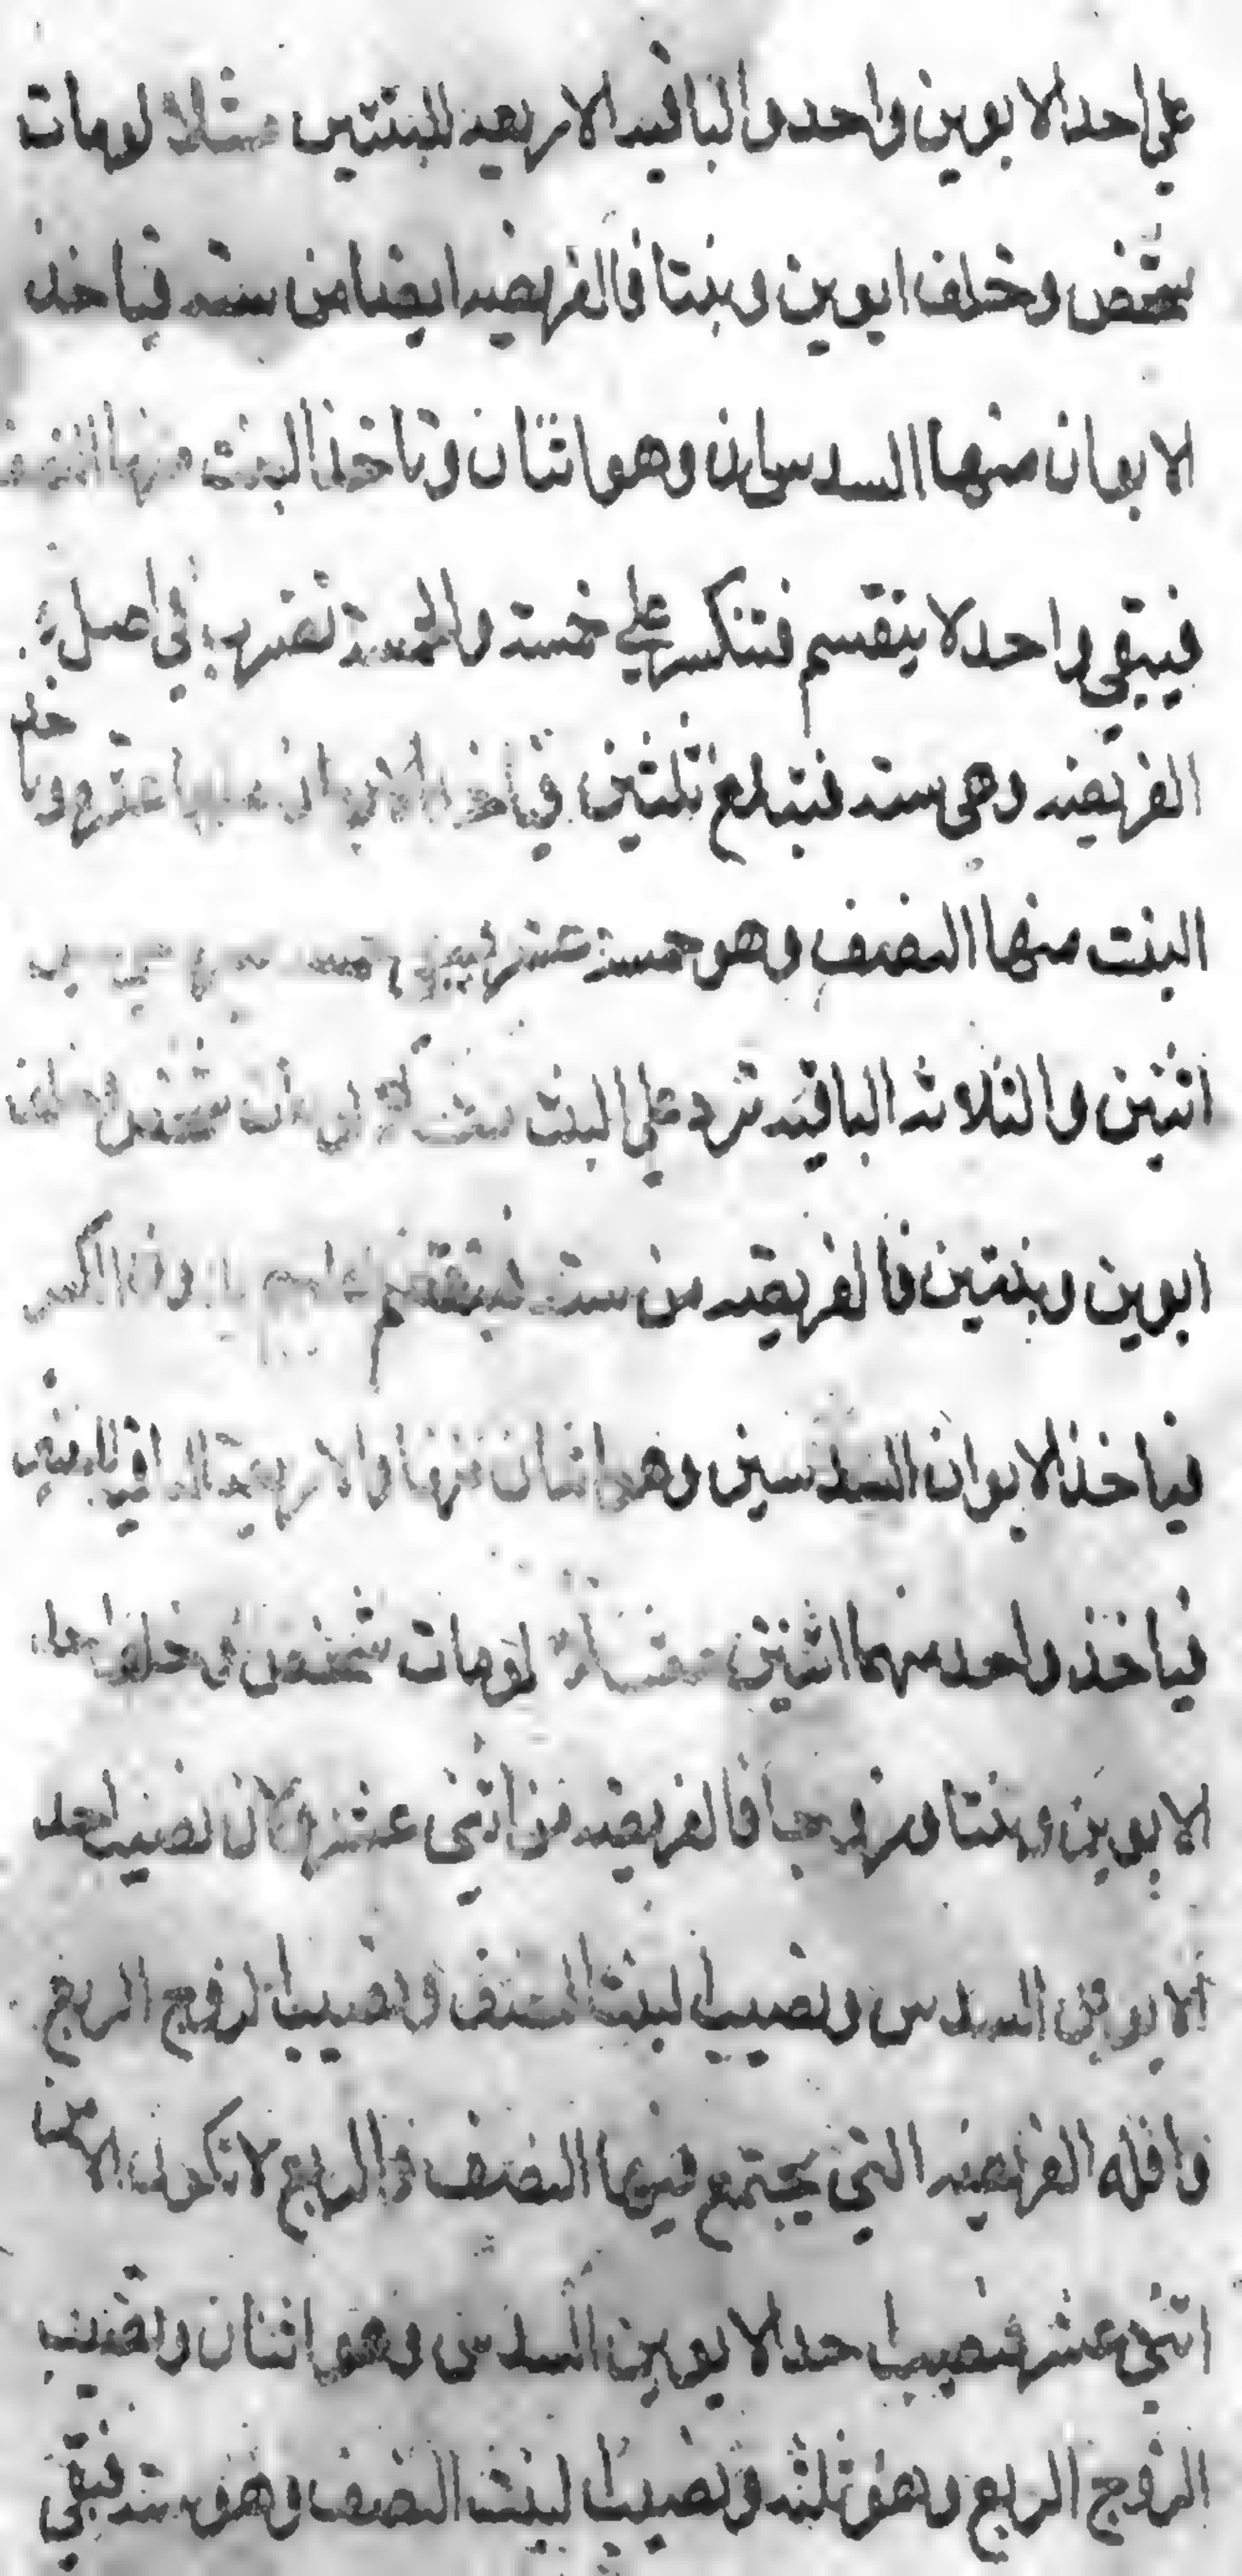 علي احد الابوين واحد والباقيه الاربعه للبنتين مثلا لومات
شخص وخلف ابوين وبنتا فالفريضه ايضا من سته فياخذ
الابوان منها السدسان وهو اثنان وتاخذ البنت منها النصف
فيبقي واحد لا ينقسم فتنكسر علي خمسه والخمسة تضرب في اصل
الفريضه وهي سته فتبلغ ثلثين فياخذ الابوان منها عشره وتاخذ
البنت منها النصف وهو خمسة عشر فيبقي خمسه
اثنين والثلاثه الباقيه ترد علي البنت لومات شخص وخلف
ابوين وبنتين فالفريضه من سته فينقسم عليهم بدون الكسر
فياخذ الابوان السدسين وهو اثنان منها والاربعة الباقيه للبنتين
فياخذ واحد منهما اثنين مثلا لومات شخص وخلف احد
الابوين وبنتا وزوجا فالفريضه من اثني عشر وكان نصيب احد
الابوين السدس ونصيب البنت النصف ونصيب الزوج الربع
واقله الفريضه التي يجتمع فيها النصف والربع لا تكون الا من
اثني عشر فنصيب احد الابوين السدس وهو اثنان ونصيب
الزوج الربع وهو ثلثه ونصيب البنت النصف وهو سته فبقي